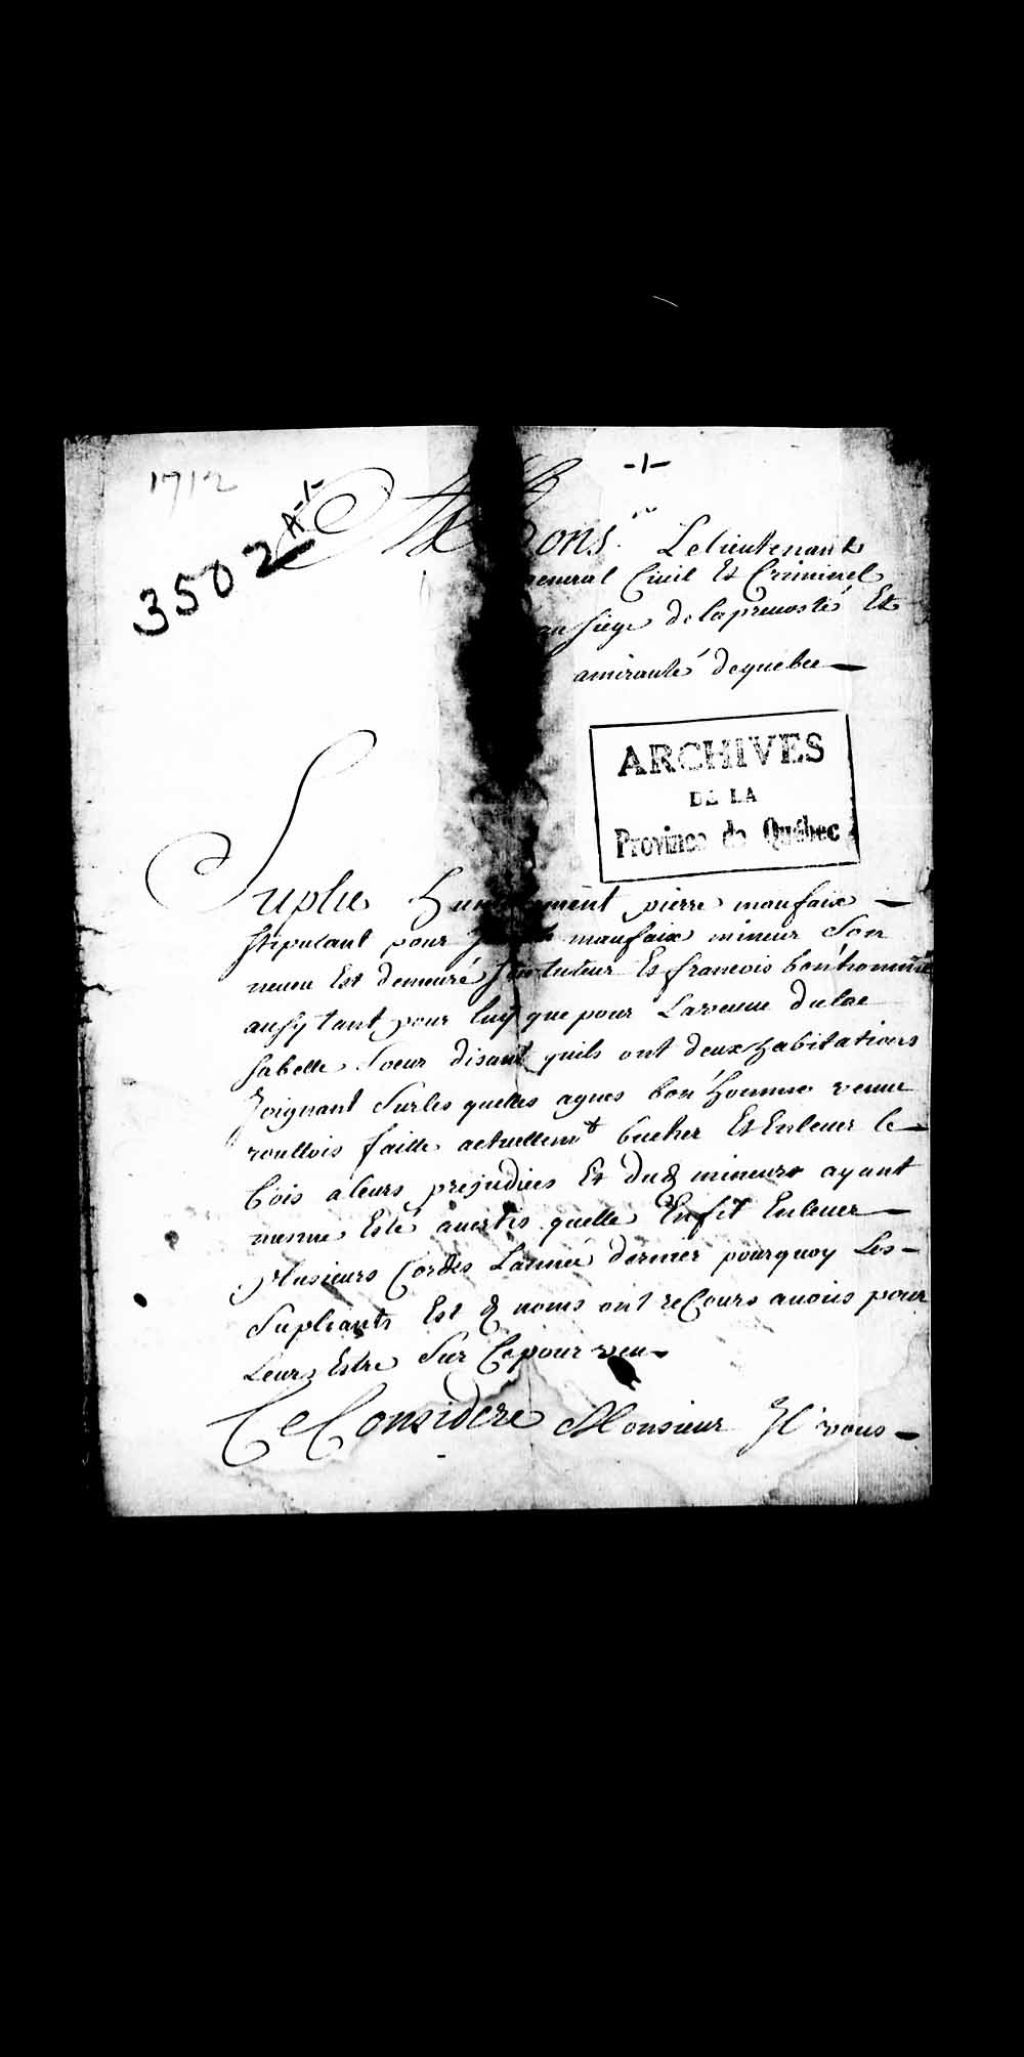 1712
-1-
3502 A-1-
A Mons.r Le lieutenant
general Ciuil Et Criminel
au siege de la preuosté Et
amirauté de quebec
ARCHIVES
DE LA
Province de Québec
Suplie humblement pierre maufaix
stipulant pour maufaix mineur Son
neueu Est demeuré Son tuteur Et francois bonhomme
ausy tant pour luy que pour La veuue dulac
sa belle Soeur disant quils ont deux habitations
Joignant Surles quelles agnes bon homme veuue
roullois faille actuellemt bucher Et Enleuer le
bois a leurs prejudices Et dud mineur ayant
mesme Esté auertis quelle En fit Enleuer
plusieurs Cordes Lannée dernier pourquoy Les
Supliants Est d noms ont reCours a uous pour
Leurs Estre Sur Ce pour veu
Ce Considere Monsieur Il vous